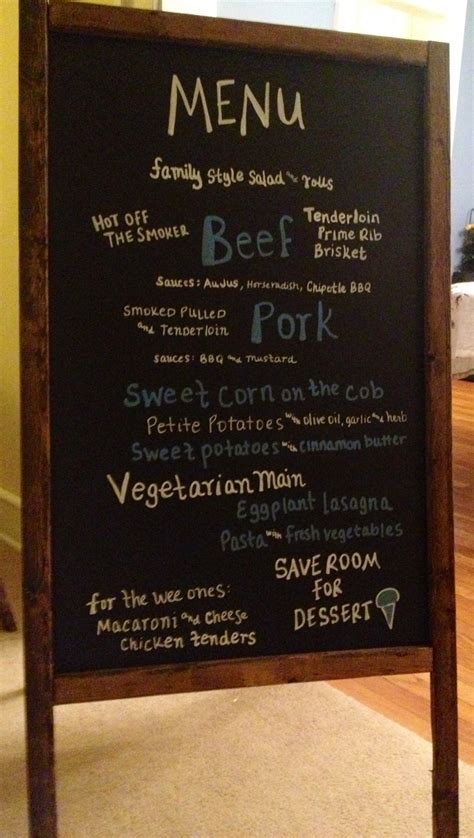 MENU
family Style Salad and rolls
HOT OFF
THE SMOKER
Beef
Tenderloin
Prime Rib
Brisket
Sauces: AuJus, Horseradish, Chipotle BBQ
Smoked Pulled
and Tenderloin
Pork
Sauces: BBQ and mustard
Sweet Corn on the cob
Petite Potatoes with olive oil, garlic and herb
Sweet potatoes with cinnamon butter
Vegetarian Main
Eggplant lasagna
Pasta with fresh vegetables
for the wee ones:
Macaroni and Cheese
Chicken Tenders
SAVE ROOM
FOR
DESSERT